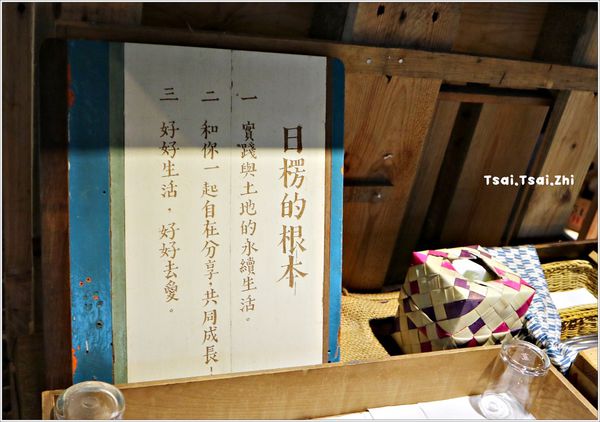 日楞的根本
一 實踐與土地的永續生活。
二 和你一起自在分享,共同成長!
三 好好生活,好好去愛。
Tsai.Tsai.Zhi